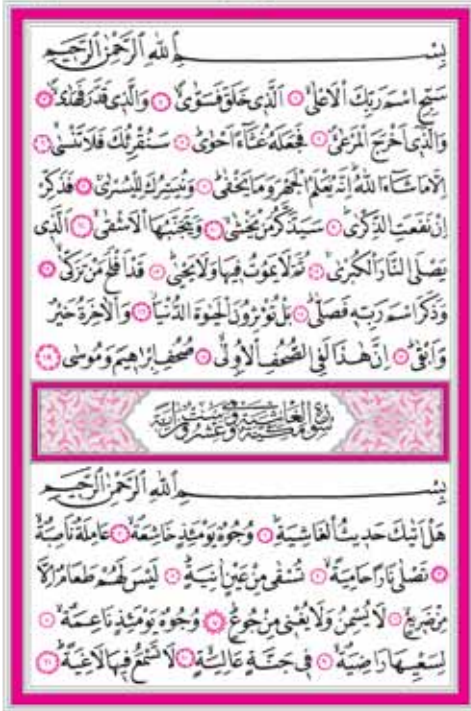 بِسْمِ اللهِ الرَّحْمٰنِ الرَّحِيمِ
سَبِّحِ اسْمَ رَبِّكَ الْاَعْلٰىۙ ﴿١﴾ اَلَّذ۪ي خَلَقَ فَسَوّٰىۙ ﴿٢﴾ وَالَّذ۪ي قَدَّرَ فَهَدٰىۙ ﴿٣﴾
وَالَّذ۪ٓي اَخْرَجَ الْمَرْعٰىۙ ﴿٤﴾ فَجَعَلَهُ غُثَٓاءً اَحْوٰىۜ ﴿٥﴾ سَنُقْرِئُكَ فَلَا تَنْسٰىۙ ﴿٦﴾
اِلَّا مَا شَٓاءَ اللهُۜ اِنَّهُ يَعْلَمُ الْجَهْرَ وَمَا يَخْفٰىۜ ﴿٧﴾ وَنُيَسِّرُكَ لِلْيُسْرٰىۚ ﴿٨﴾ فَذَكِّرْ
اِنْ نَفَعَتِ الذِّكْرٰىۜ ﴿٩﴾ سَيَذَّكَّرُ مَنْ يَخْشٰىۙ ﴿١٠﴾ وَيَتَجَنَّبُهَا الْاَشْقٰىۙ ﴿١١﴾ اَلَّذ۪ي
يَصْلَى النَّارَ الْكُبْرٰىۚ ﴿١٢﴾ ثُمَّ لَا يَمُوتُ ف۪يهَا وَلَا يَحْيٰىۜ ﴿١٣﴾ قَدْ اَفْلَحَ مَنْ تَزَكّٰىۙ ﴿١٤﴾
وَذَكَرَ اسْمَ رَبِّه۪ فَصَلّٰىۜ ﴿١٥﴾ بَلْ تُؤْثِرُونَ الْحَيٰوةَ الدُّنْيَاۘ ﴿١٦﴾ وَالْاٰخِرَةُ خَيْرٌ
وَاَبْقٰىۜ ﴿١٧﴾ اِنَّ هٰذَا لَفِي الصُّحُفِ الْاُو۫لٰىۙ ﴿١٨﴾ صُحُفِ اِبْرٰه۪يمَ وَمُوسٰى ﴿١٩﴾
سورة الغاشية مكية وهي ست وعشرون اية
بِسْمِ اللهِ الرَّحْمٰنِ الرَّحِيمِ
هَلْ اَتٰيكَ حَد۪يثُ الْغَاشِيَةِۜ ﴿١﴾ وُجُوهٌ يَوْمَئِذٍ خَاشِعَةٌۙ ﴿٢﴾ عَامِلَةٌ نَاصِبَةٌۙ
﴿٣﴾ تَصْلٰى نَارًا حَامِيَةًۙ ﴿٤﴾ تُسْقٰى مِنْ عَيْنٍ اٰنِيَةٍۜ ﴿٥﴾ لَيْسَ لَهُمْ طَعَامٌ اِلَّا
مِنْ ضَر۪يعٍۙ ﴿٦﴾ لَا يُسْمِنُ وَلَا يُغْن۪ي مِنْ جُوعٍۜ ﴿٧﴾ وُجُوهٌ يَوْمَئِذٍ نَاعِمَةٌۙ ﴿٨﴾
لِسَعْيِهَا رَاضِيَةٌۙ ﴿٩﴾ ف۪ي جَنَّةٍ عَالِيَةٍۙ ﴿١٠﴾ لَا تَسْمَعُ ف۪يهَا لَاغِيَةًۜ ﴿١١﴾